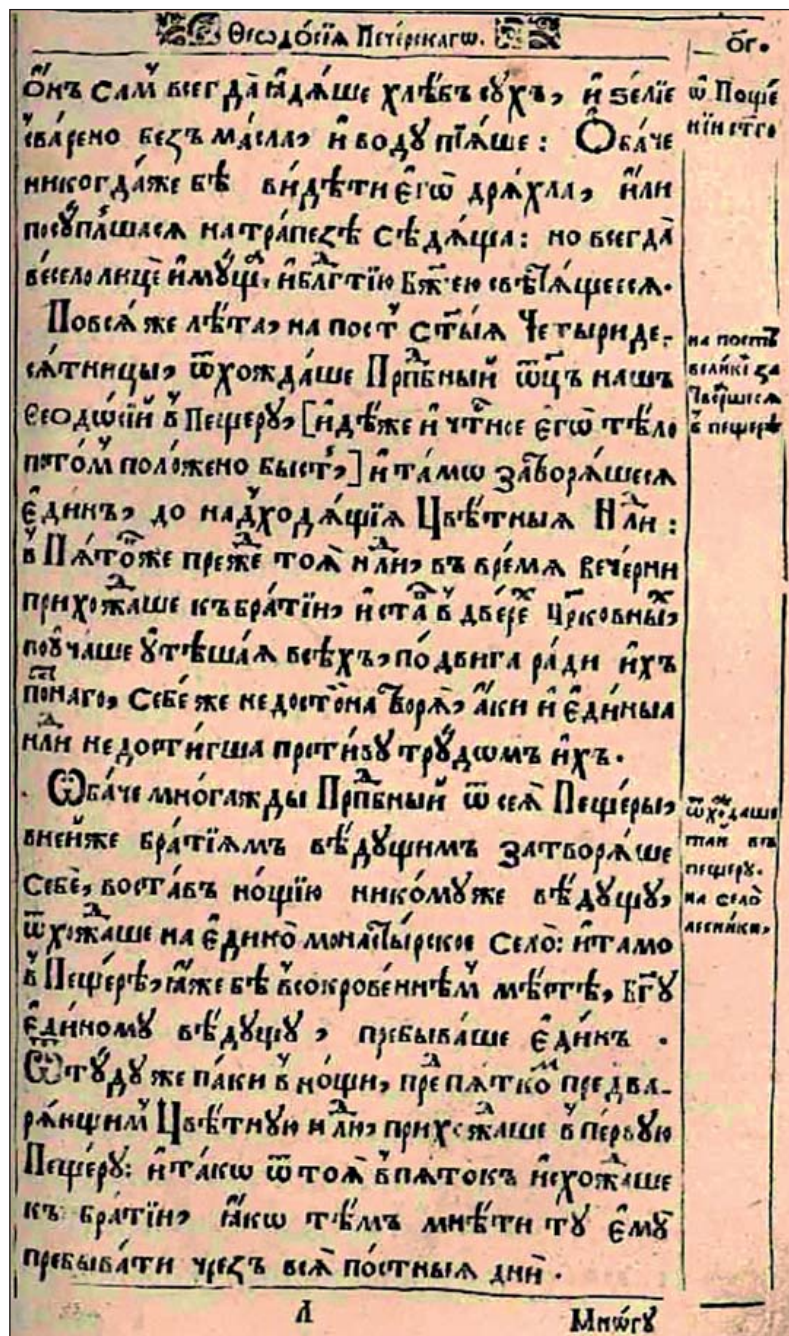 Ѳеѡдо́сїѧ Пече́рскагѡ.
о҃г.
ѻ҆́нъ са́м всегда̀ ꙗ҆дѧ́ше хлѣ́бъ сꙋ́хъ, и҆ ѕе́лїе
сва́рено беꙁъ ма́сла, и҆ водꙋ̀ пїѧ́ше: Ѻ҆ба́че
никогда́же бѣ̀ ви́дѣти є҆гѡ̀ дрѧ́хла, и҆лѝ
посꙋ́пльшасѧ на тра́пеꙁѣ сѣдѧ́ща: но всегда̀
ве́село лицѐ и҆мꙋ́щ, и҆ бл҃гⷣтїю Бж҃ею свѣтѧ́щеесѧ.
По всѧ̀ же лѣ́та, на по́ст ст҃ы́ѧ Четыриде-
сѧ́тницы, ѿхожда́ше Прпⷣбный ѿц҃ъ нашъ
Ѳеодѡ́сїй в Пеще́рꙋ, [и҆дѣ́же и҆ чⷭ҇тное є҆гѡ̀ тѣ́ло
пото́м поло́жено бы́сть,] и҆ та́мѡ ꙁатворѧ́шесѧ
є҆ди́нъ, до надходѧ́щїѧ Цвѣ́тныѧ Нⷣли:
в Пѧто́к же пре́жде тоѧ̀ нⷣли, въ вре́мѧ вече́рни
прихожⷣа́ше къ бра́тїи, и҆ ста́в в две́рехъ Цр҃ко́вныхъ,
поꙋча́ше ᲂу҆тѣша́ѧ всѣ́хъ, по́двига ра́ди и҆́хъ
по́стнаго, себе́ же недосто́йна творѧ̀, ꙗ҆́ки и҆ є҆ди́ныѧ
нⷣли недости́гша проти́вꙋ трꙋдѡ́мъ и҆́хъ.
Ѻ҆ба́че мно́гажды Прпⷣбный ѿ сеѧ̀ Пеще́ры,
в не́йже бра́тїѧмъ вѣ́дꙋщимъ ꙁатворѧ́ше
себѐ, воста́въ но́щїю никомꙋ́же вѣ́дꙋщꙋ,
ѿхожⷣа́ше на є҆ди́но монасты́рское село̀: и҆ тамо
в Пеще́рѣ, ꙗ҆́же бѣ̀ в сокрове́ннѣм мѣ́стѣ, Бг҃ꙋ
є҆ди́номꙋ вѣ́дꙋщꙋ, пребыва́ше є҆ди́нъ.
Ѿтꙋ́дꙋ же па́ки в но́щи, преⷣ пѧтко́м предва-
рѧ́ющим Цвѣ́тнꙋю нⷣлю, прихожⷣа́ше в пе́рвꙋю
Пеще́рꙋ: и҆ та́кѡ ѿ тоѧ̀ в пѧто́къ и҆схожⷣа́ше
къ бра́тїи, ꙗ҆́кѡ тѣ́мъ мнѣ́ти тꙋ̀ є҆мꙋ̀
пребыва́ти чреꙁъ всѧ̀ по́стныѧ днѝ.
ѡ҆ Поще́
нїи є҆гѡ
на постъ
вели́кїй ꙁа
творѧ́шесѧ
в пещерѣ
ѿхождаше
тай въ
пещерꙋ.
на село̀
лесни́ки,
Л
Мнѡ́гꙋ